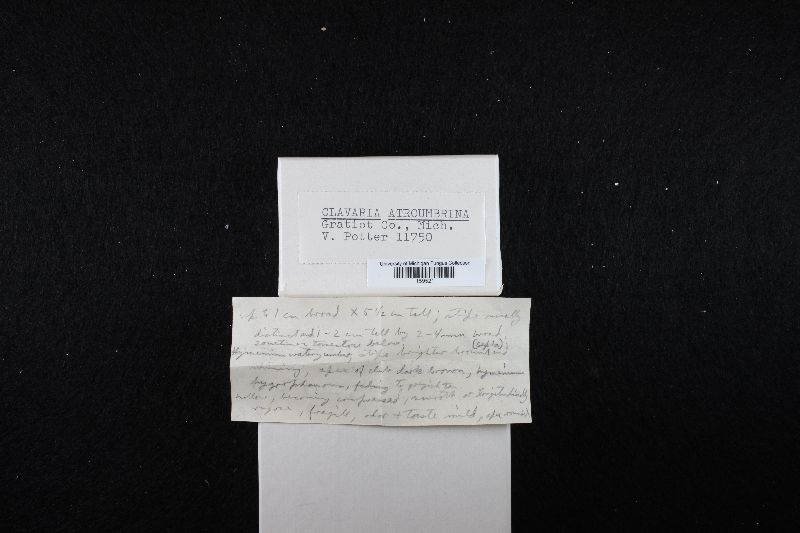 CLAVARIA ATROUMBRINA
Gratiot Co., Mich.
V. Potter 11750
University of Michigan Fungus Collection
up to 1 cm broad X 5 1/2 cm tall; stipe
distinct and 1-2 cm tall by 2-4 mm broad
sometimes tomentose below,
Hymenium watery umber, stipe brighter
shining, apex of club dark brown, hymenium
hygrophanous, fading to
hollow, becoming compressed, smooth or longitudinally
rugose, fragile, odor + taste mild,